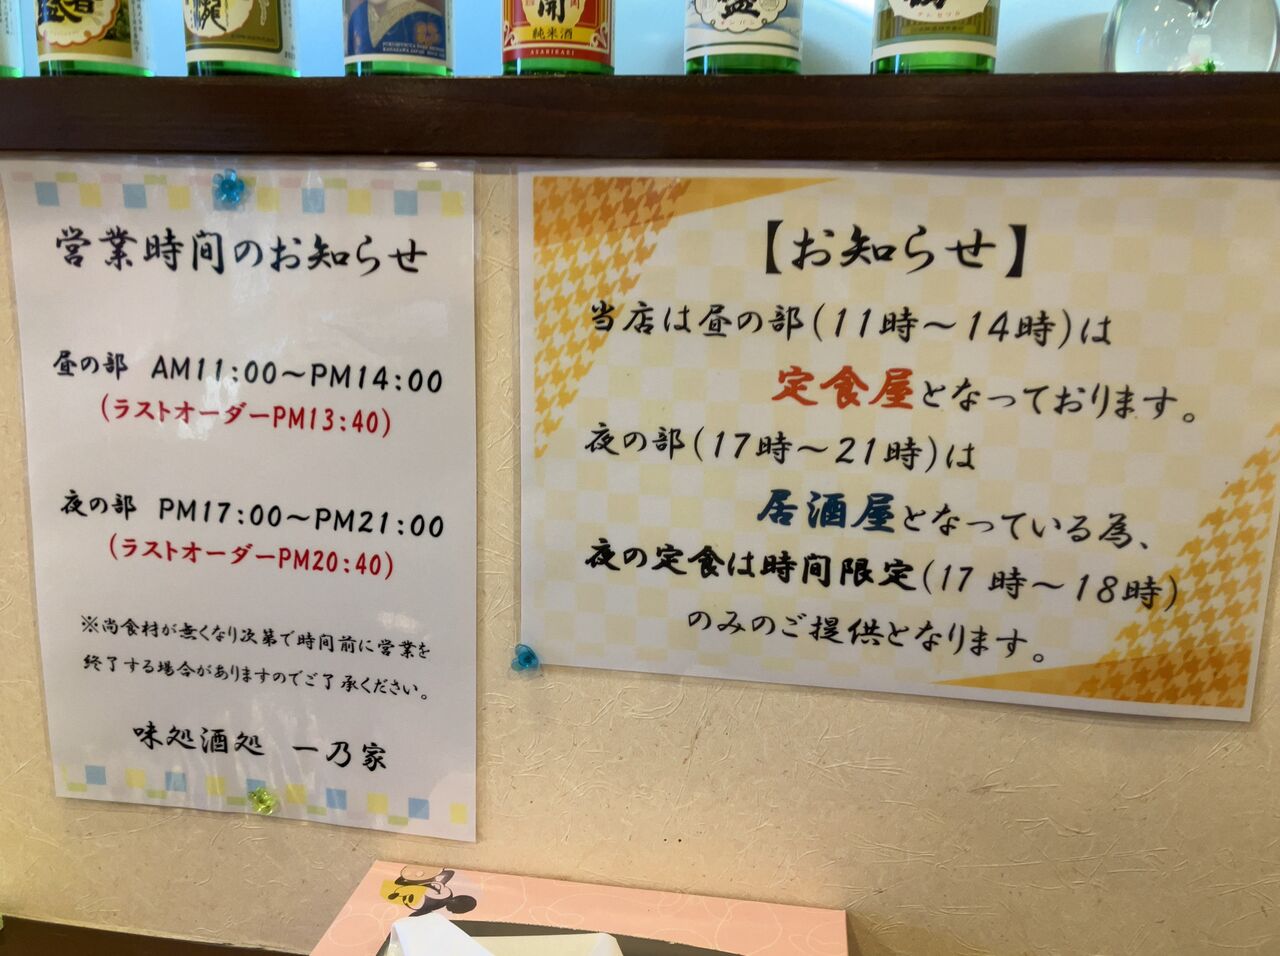 開
純米酒
ASABIRAKI
営業時間のお知らせ
昼の部 AM11:00～PM14:00
(ラストオーダーPM13:40)
夜の部 PM17:00～PM21:00
(ラストオーダーPM20:40)
※尚食材が無くなり次第で時間前に営業を
終了する場合がありますのでご了承ください。
味処酒処 一乃家
【お知らせ】
当店は昼の部(11時～14時)は
定食屋となっております。
夜の部(17時～21時)は
居酒屋となっている為、
夜の定食は時間限定(17時～18時)
のみのご提供となります。